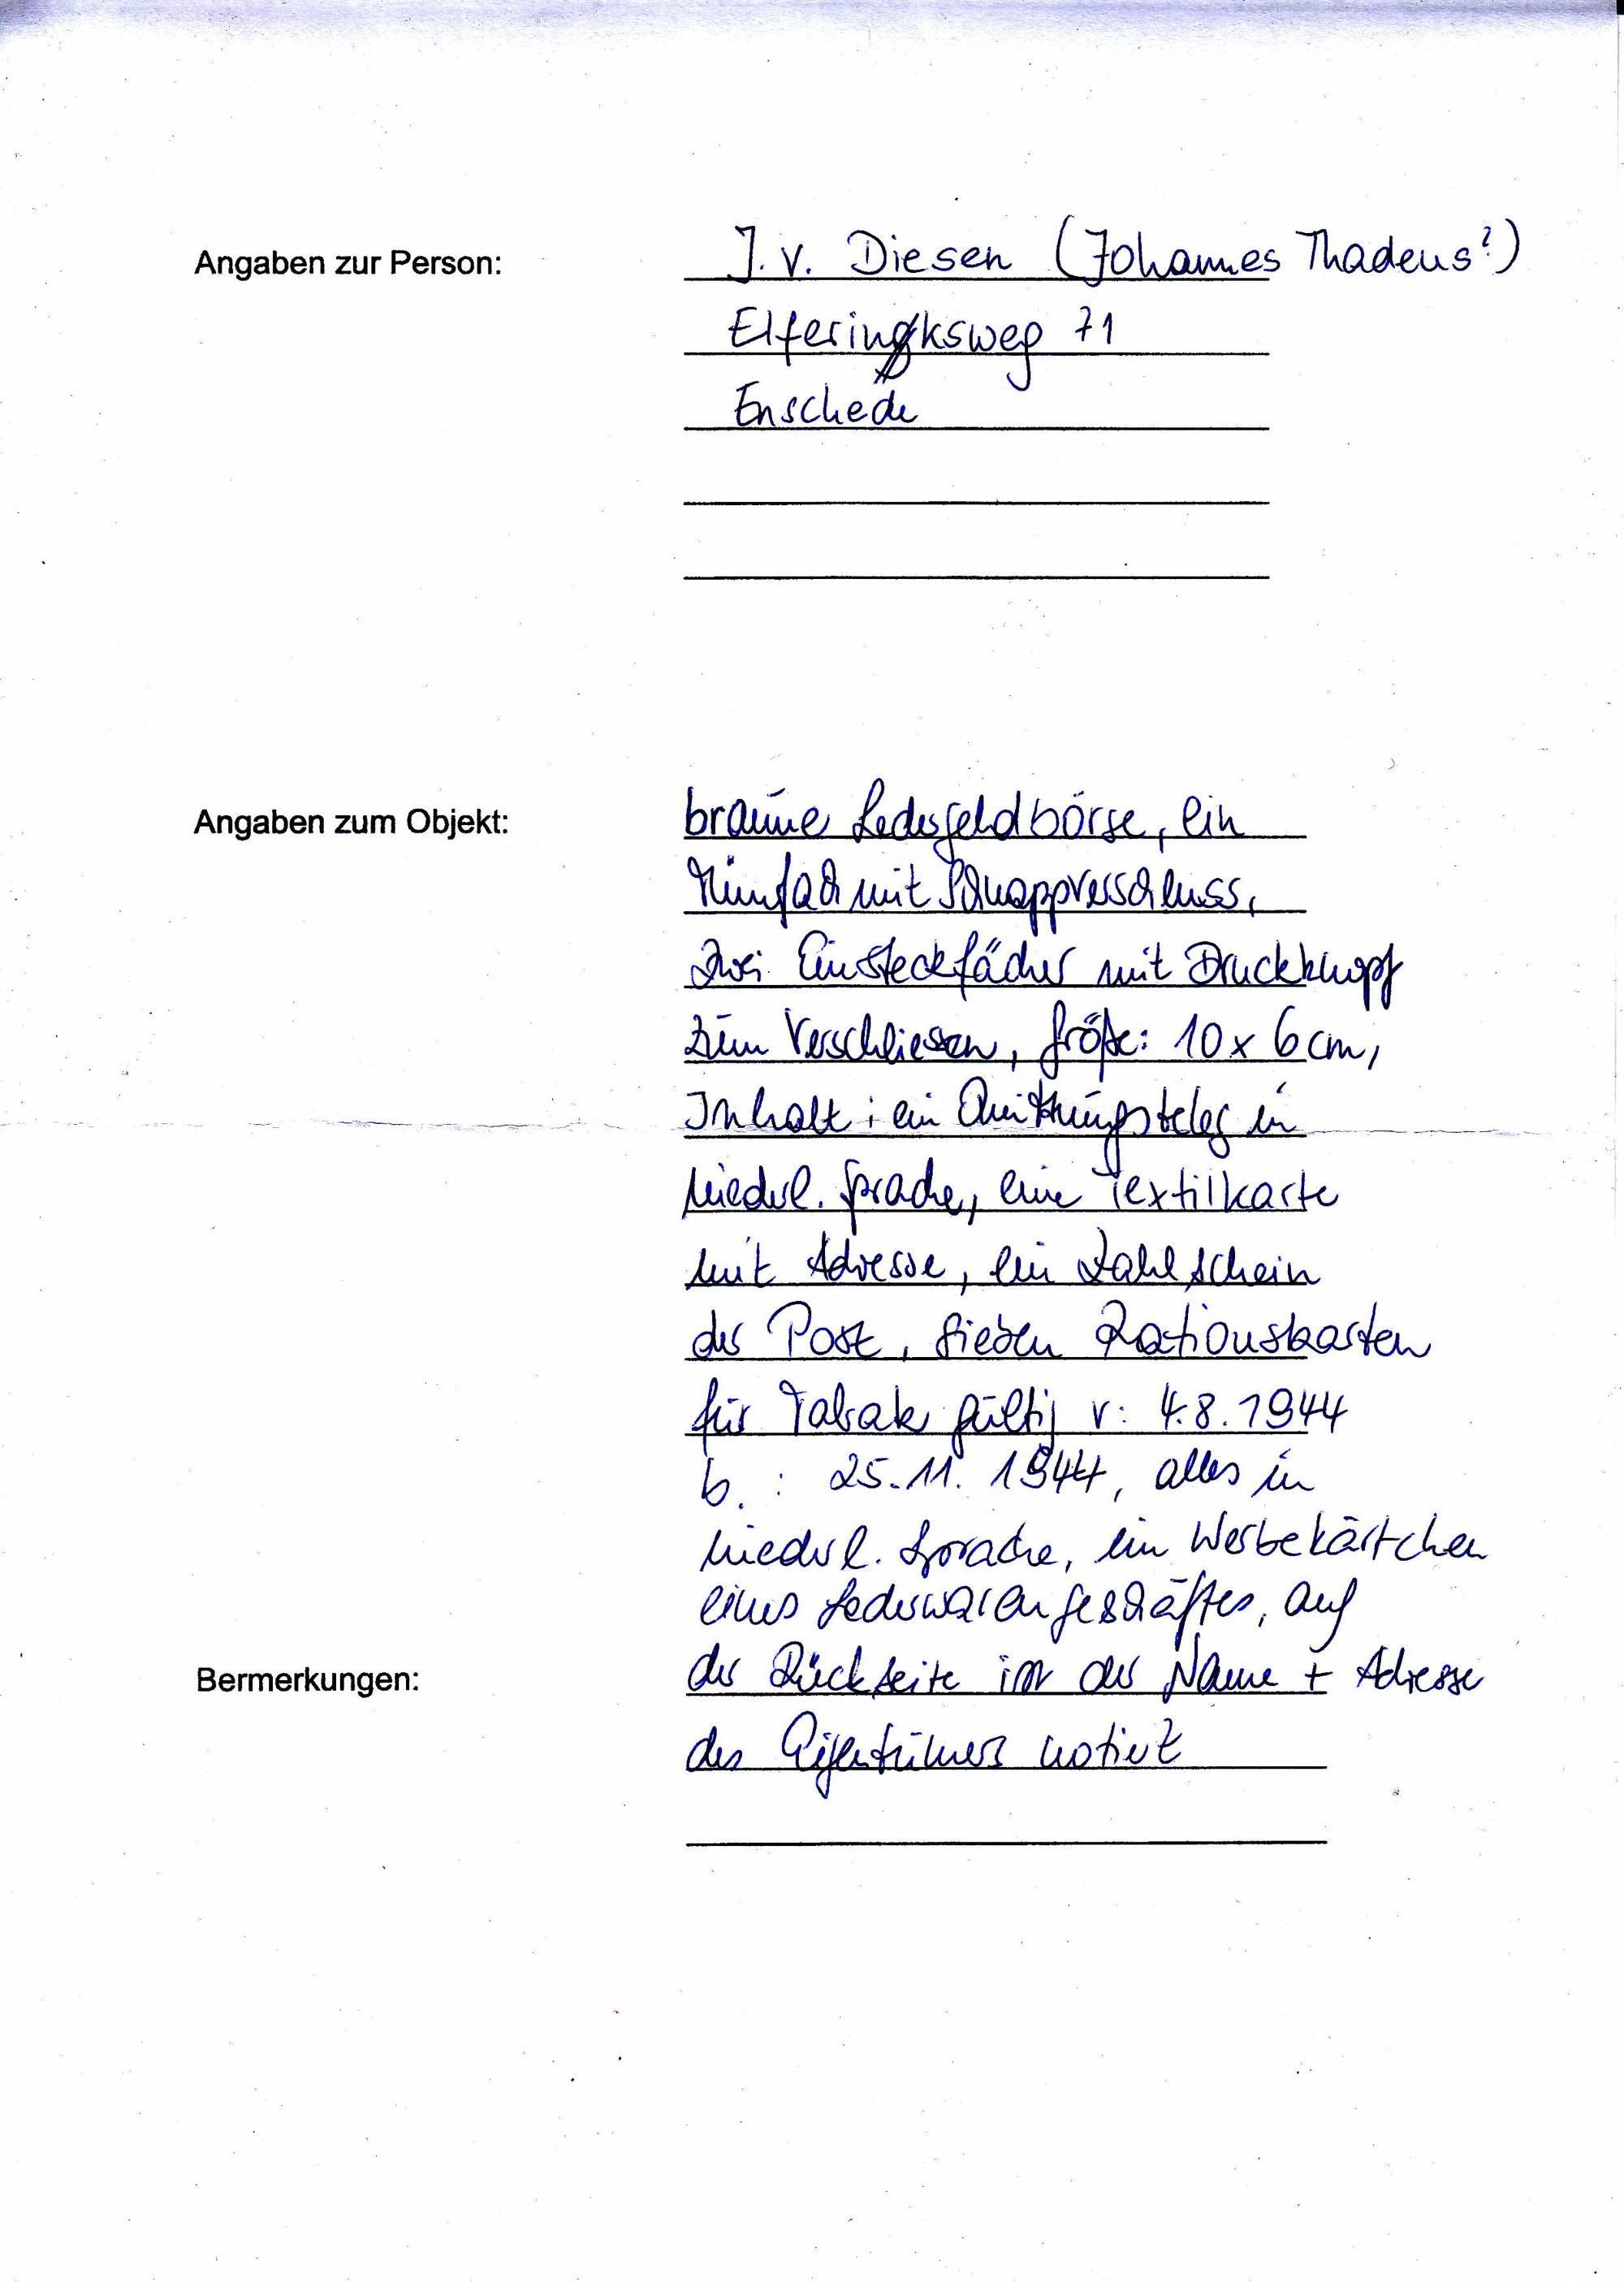 Angaben zur Person:
J. v. Diesen (Johannes Thadeus?)
Elferinksweg 71
Enschede
Angaben zum Objekt:
braune Ledergeldbörse, ein
Münzfach mit Schnappverschluss,
zwei Einsteckfächer mit Druckknopf
zum Verschliesen, Größe: 10 x 6 cm,
Inhalt: ein Quittungsbeleg in
niederl. Sprache, eine Textilkarte
mit Adresse, ein Zahlschein
der Post, sieben Rationskarten
für Tabak gültig v: 4.8.1944
b. : 25.11.1944, alles in
niederl. Sprache, ein Werbekärtchen
eines Lederwarengeschäftes, auf
Bermerkungen:
der Rückseite ist der Name + Adresse
des Eigentümers notiert